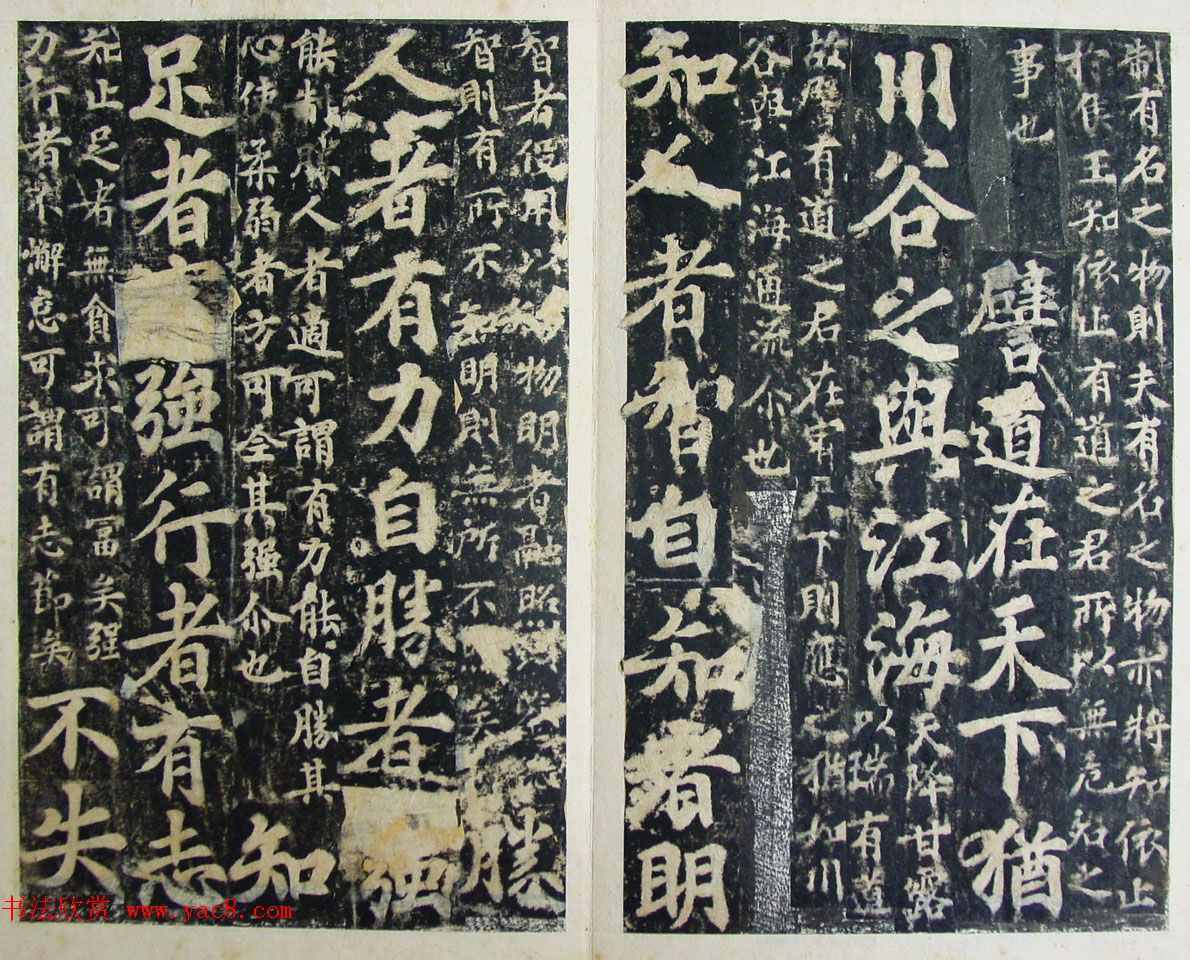 制有名之物則夫有名之物亦將知依止
於侯王知依止有道之君所以無危殆之
事也
譬道在天下猶
川谷之與江海
天降甘露
以瑞有道
故譬有道之君在宥天下則應猶如川
谷與江海通流尒也
知人者智自知者明
智者役用以知物明者融照
智則有所不知明則無所不矣
勝
人者有力自勝者強
能制勝人者適可謂有力能自勝其
心使柔弱者方可全其強尒也
知
足者強行者有志
知止足者無貪求可謂富矣強
力行者不懈怠可謂有志節矣
不失
书法欣赏 www.yac8.com